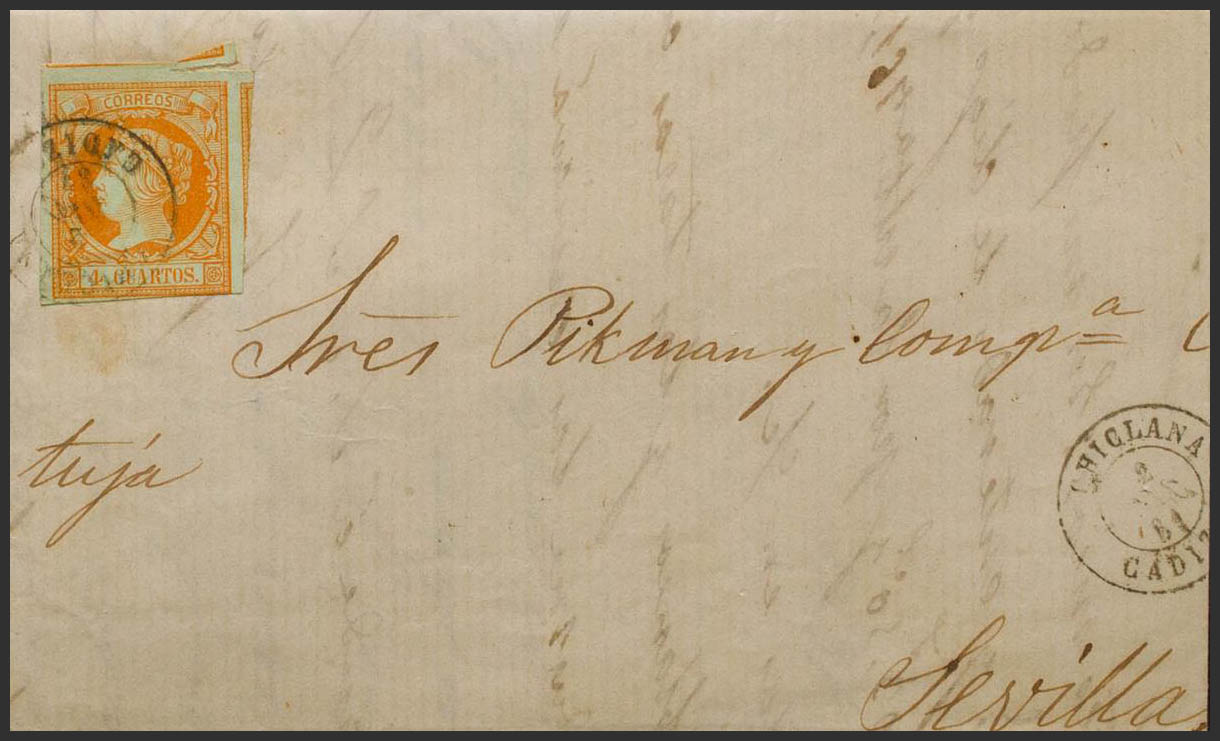 CORREOS
4 CUARTOS.
CADIZ
Sres Pikman y Comp.a C
tuja
CHICLANA
61
CADIZ
Sevilla,